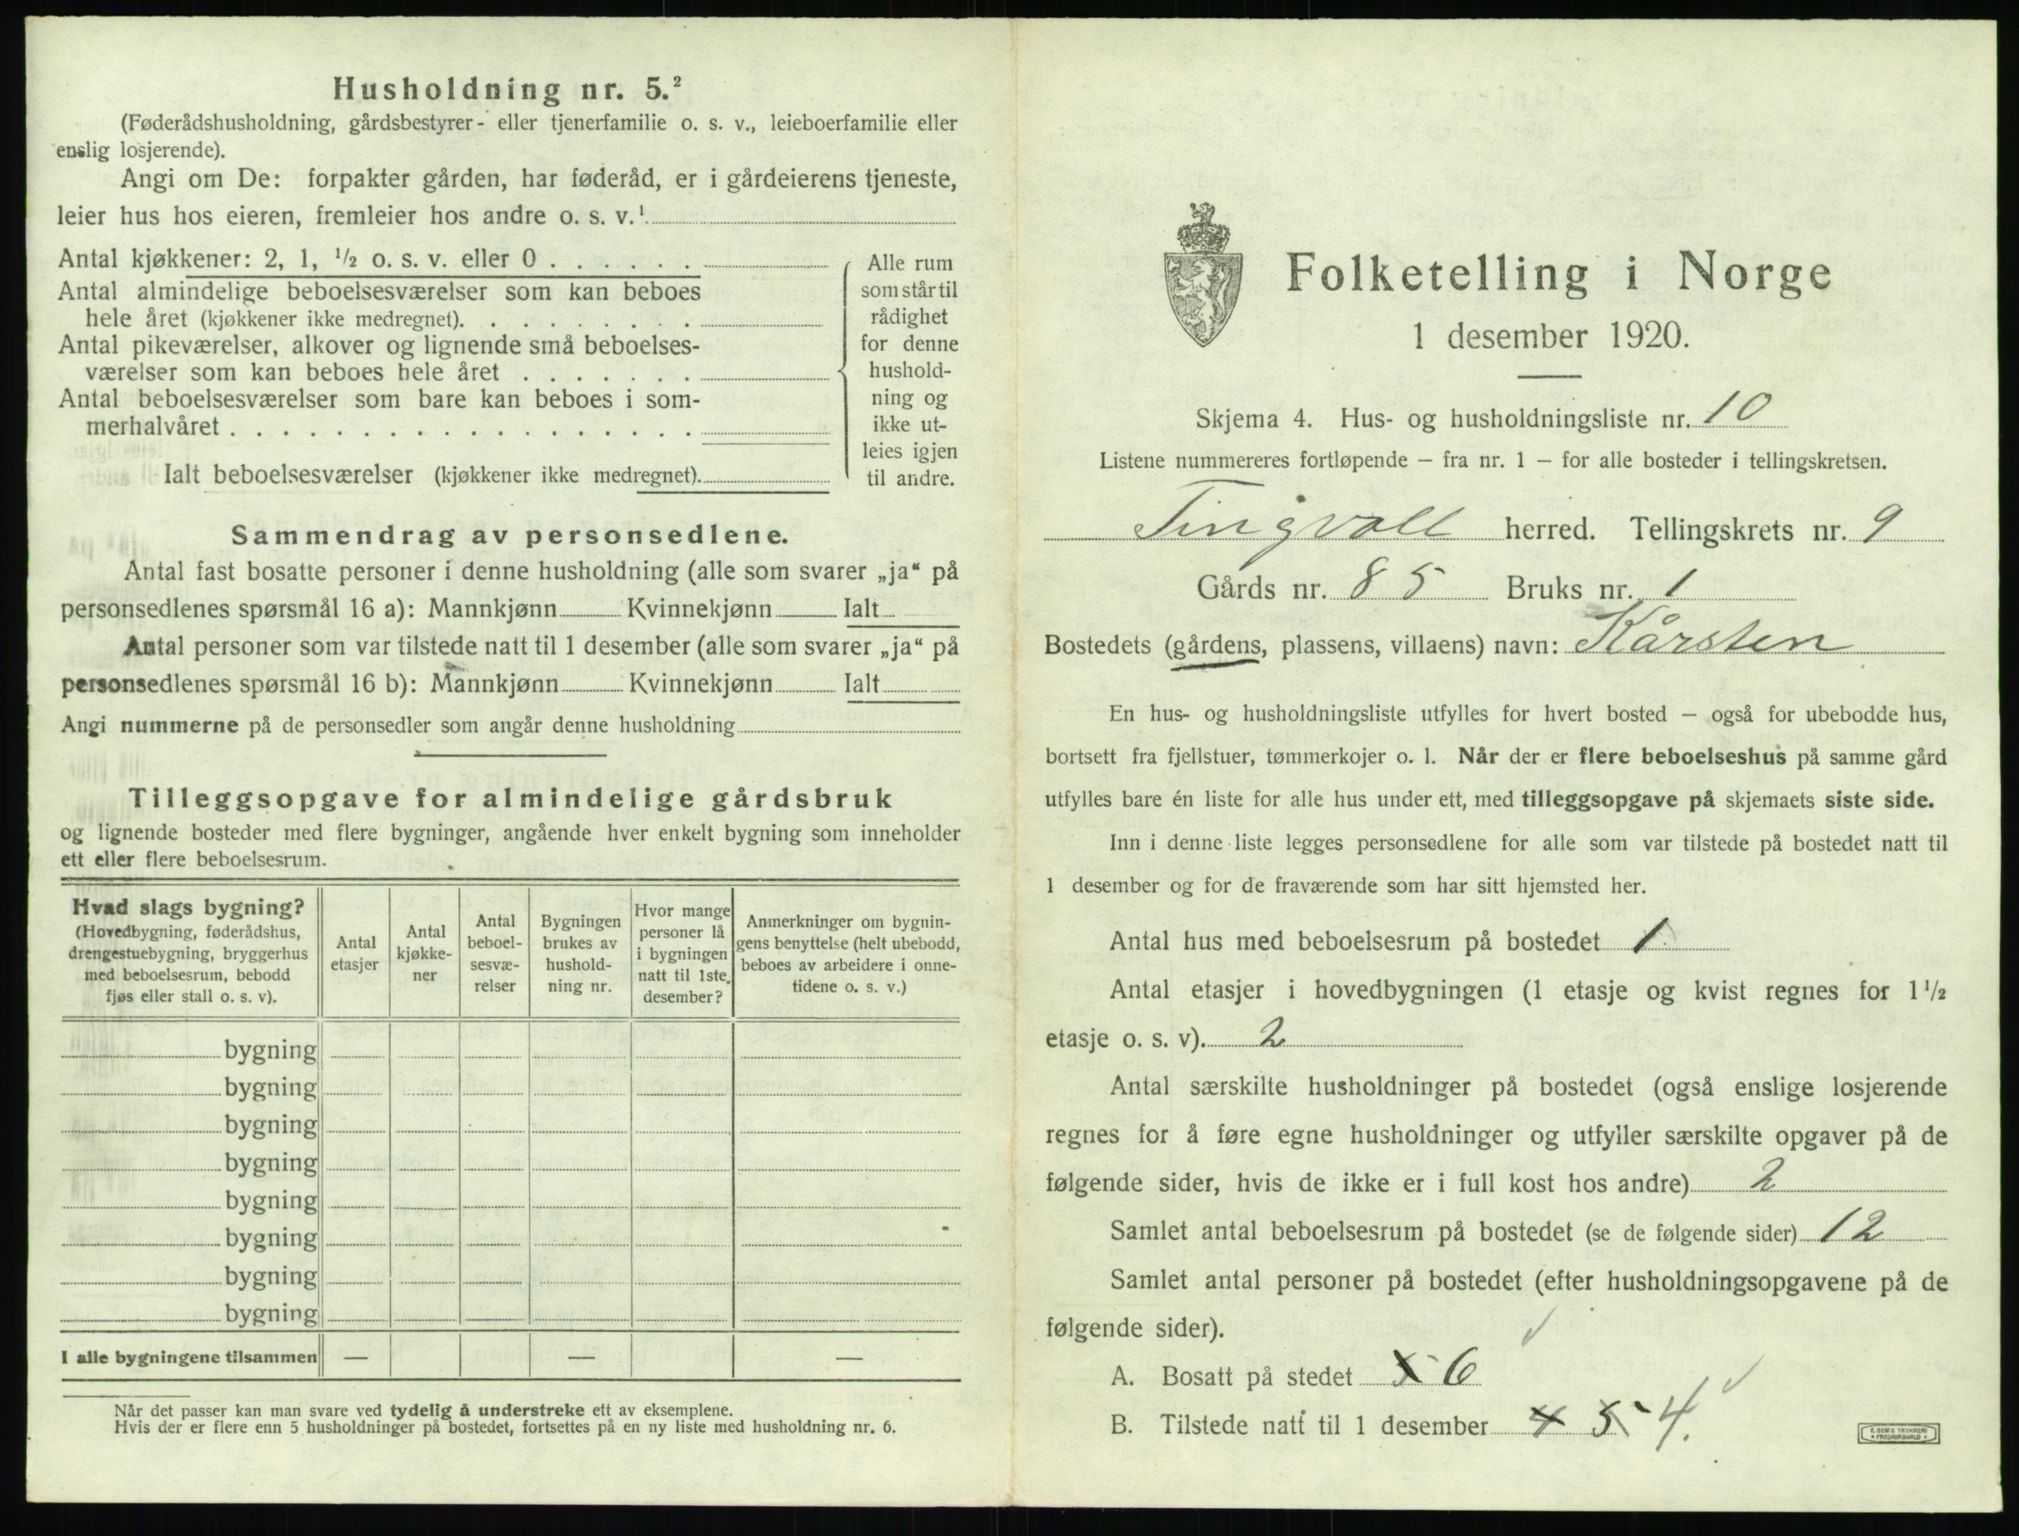 Husholdning nr. 5.²
(Føderådshusholdning, gårdsbestyrer- eller tjenerfamilie o. s. v., leieboerfamilie eller
enslig losjerende).
Angi om De: forpakter gården, har føderåd, er i gårdeierens tjeneste,
leier hus hos eieren, fremleier hos andre o. s. v.¹
Antal kjøkkener: 2, 1, ½ o. s. v. eller 0 . . . . . .
Antal almindelige beboelsesværelser som kan beboes
hele året (kjøkkener ikke medregnet). . . . . . . . .
Antal pikeværelser, alkover og lignende små beboelses-
værelser som kan beboes hele året . . . . . . .
Antal beboelsesværelser som bare kan beboes i som-
merhalvåret . . . . . . . . . . . . . . . . . .
Ialt beboelsesværelser (kjøkkener ikke medregnet).
Alle rum
som står til
rådighet
for denne
hushold-
ning og
ikke ut-
leies igjen
til andre.
Sammendrag av personsedlene.
Antal fast bosatte personer i denne husholdning (alle som svarer „ja“ på
personsedlenes spørsmål 16 a): Mannkjønn Kvinnekjønn Ialt
Antal personer som var tilstede natt til 1 desember (alle som svarer „ja“ på
personsedlenes spørsmål 16 b): Mannkjønn Kvinnekjønn Ialt
Angi nummerne på de personsedler som angår denne husholdning
Tilleggsopgave for almindelige gårdsbruk
og lignende bosteder med flere bygninger, angående hver enkelt bygning som inneholder
ett eller flere beboelsesrum.
Hvad slags bygning?
(Hovedbygning, føderådshus,
drengestuebygning, bryggerhus
med beboelsesrum, bebodd
fjøs eller stall o. s. v).
Antal
etasjer
Antal
kjøkke-
ner
Antal
beboel-
sesvæ-
relser
Bygningen
brukes av
hushold-
ning nr.
Hvor mange
personer lå
i bygningen
natt til 1ste
desember?
Anmerkninger om bygnin-
gens benyttelse (helt ubebodd,
beboes av arbeidere i onne-
tidene o. s. v.)
bygning
bygning
bygning
bygning
bygning
bygning
bygning
bygning
I alle bygningene tilsammen — — —
Når det passer kan man svare ved tydelig å understreke ett av eksemplene.
Hvis der er flere enn 5 husholdninger på bostedet, fortsettes på en ny liste med husholdning nr. 6.
Folketelling i Norge
1 desember 1920.
Skjema 4. Hus- og husholdningsliste nr. 10
Listene nummereres fortløpende – fra nr. 1 – for alle bosteder i tellingskretsen.
Tingvoll herred. Tellingskrets nr. 9
Gårds nr. 85 Bruks nr. 1
Bostedets (gårdens, plassens, villaens) navn: Kårsten
En hus- og husholdningsliste utfylles for hvert bosted – også for ubebodde hus,
bortsett fra fjellstuer, tømmerkojer o. l. Når der er flere beboelseshus på samme gård
utfylles bare én liste for alle hus under ett, med tilleggsopgave på skjemaets siste side.
Inn i denne liste legges personsedlene for alle som var tilstede på bostedet natt til
1 desember og for de fraværende som har sitt hjemsted her.
Antal hus med beboelsesrum på bostedet 1
Antal etasjer i hovedbygningen (1 etasje og kvist regnes for 1½
etasje o. s. v). 2
Antal særskilte husholdninger på bostedet (også enslige losjerende
regnes for å føre egne husholdninger og utfyller særskilte opgaver på de
følgende sider, hvis de ikke er i full kost hos andre) 2
Samlet antal beboelsesrum på bostedet (se de følgende sider) 12
Samlet antal personer på bostedet (efter husholdningsopgavene på de
følgende sider).
A. Bosatt på stedet 5 6
B. Tilstede natt til 1 desember 4 5 4.
E. SEM'S TRYKKERI
FREDRIKSHALD